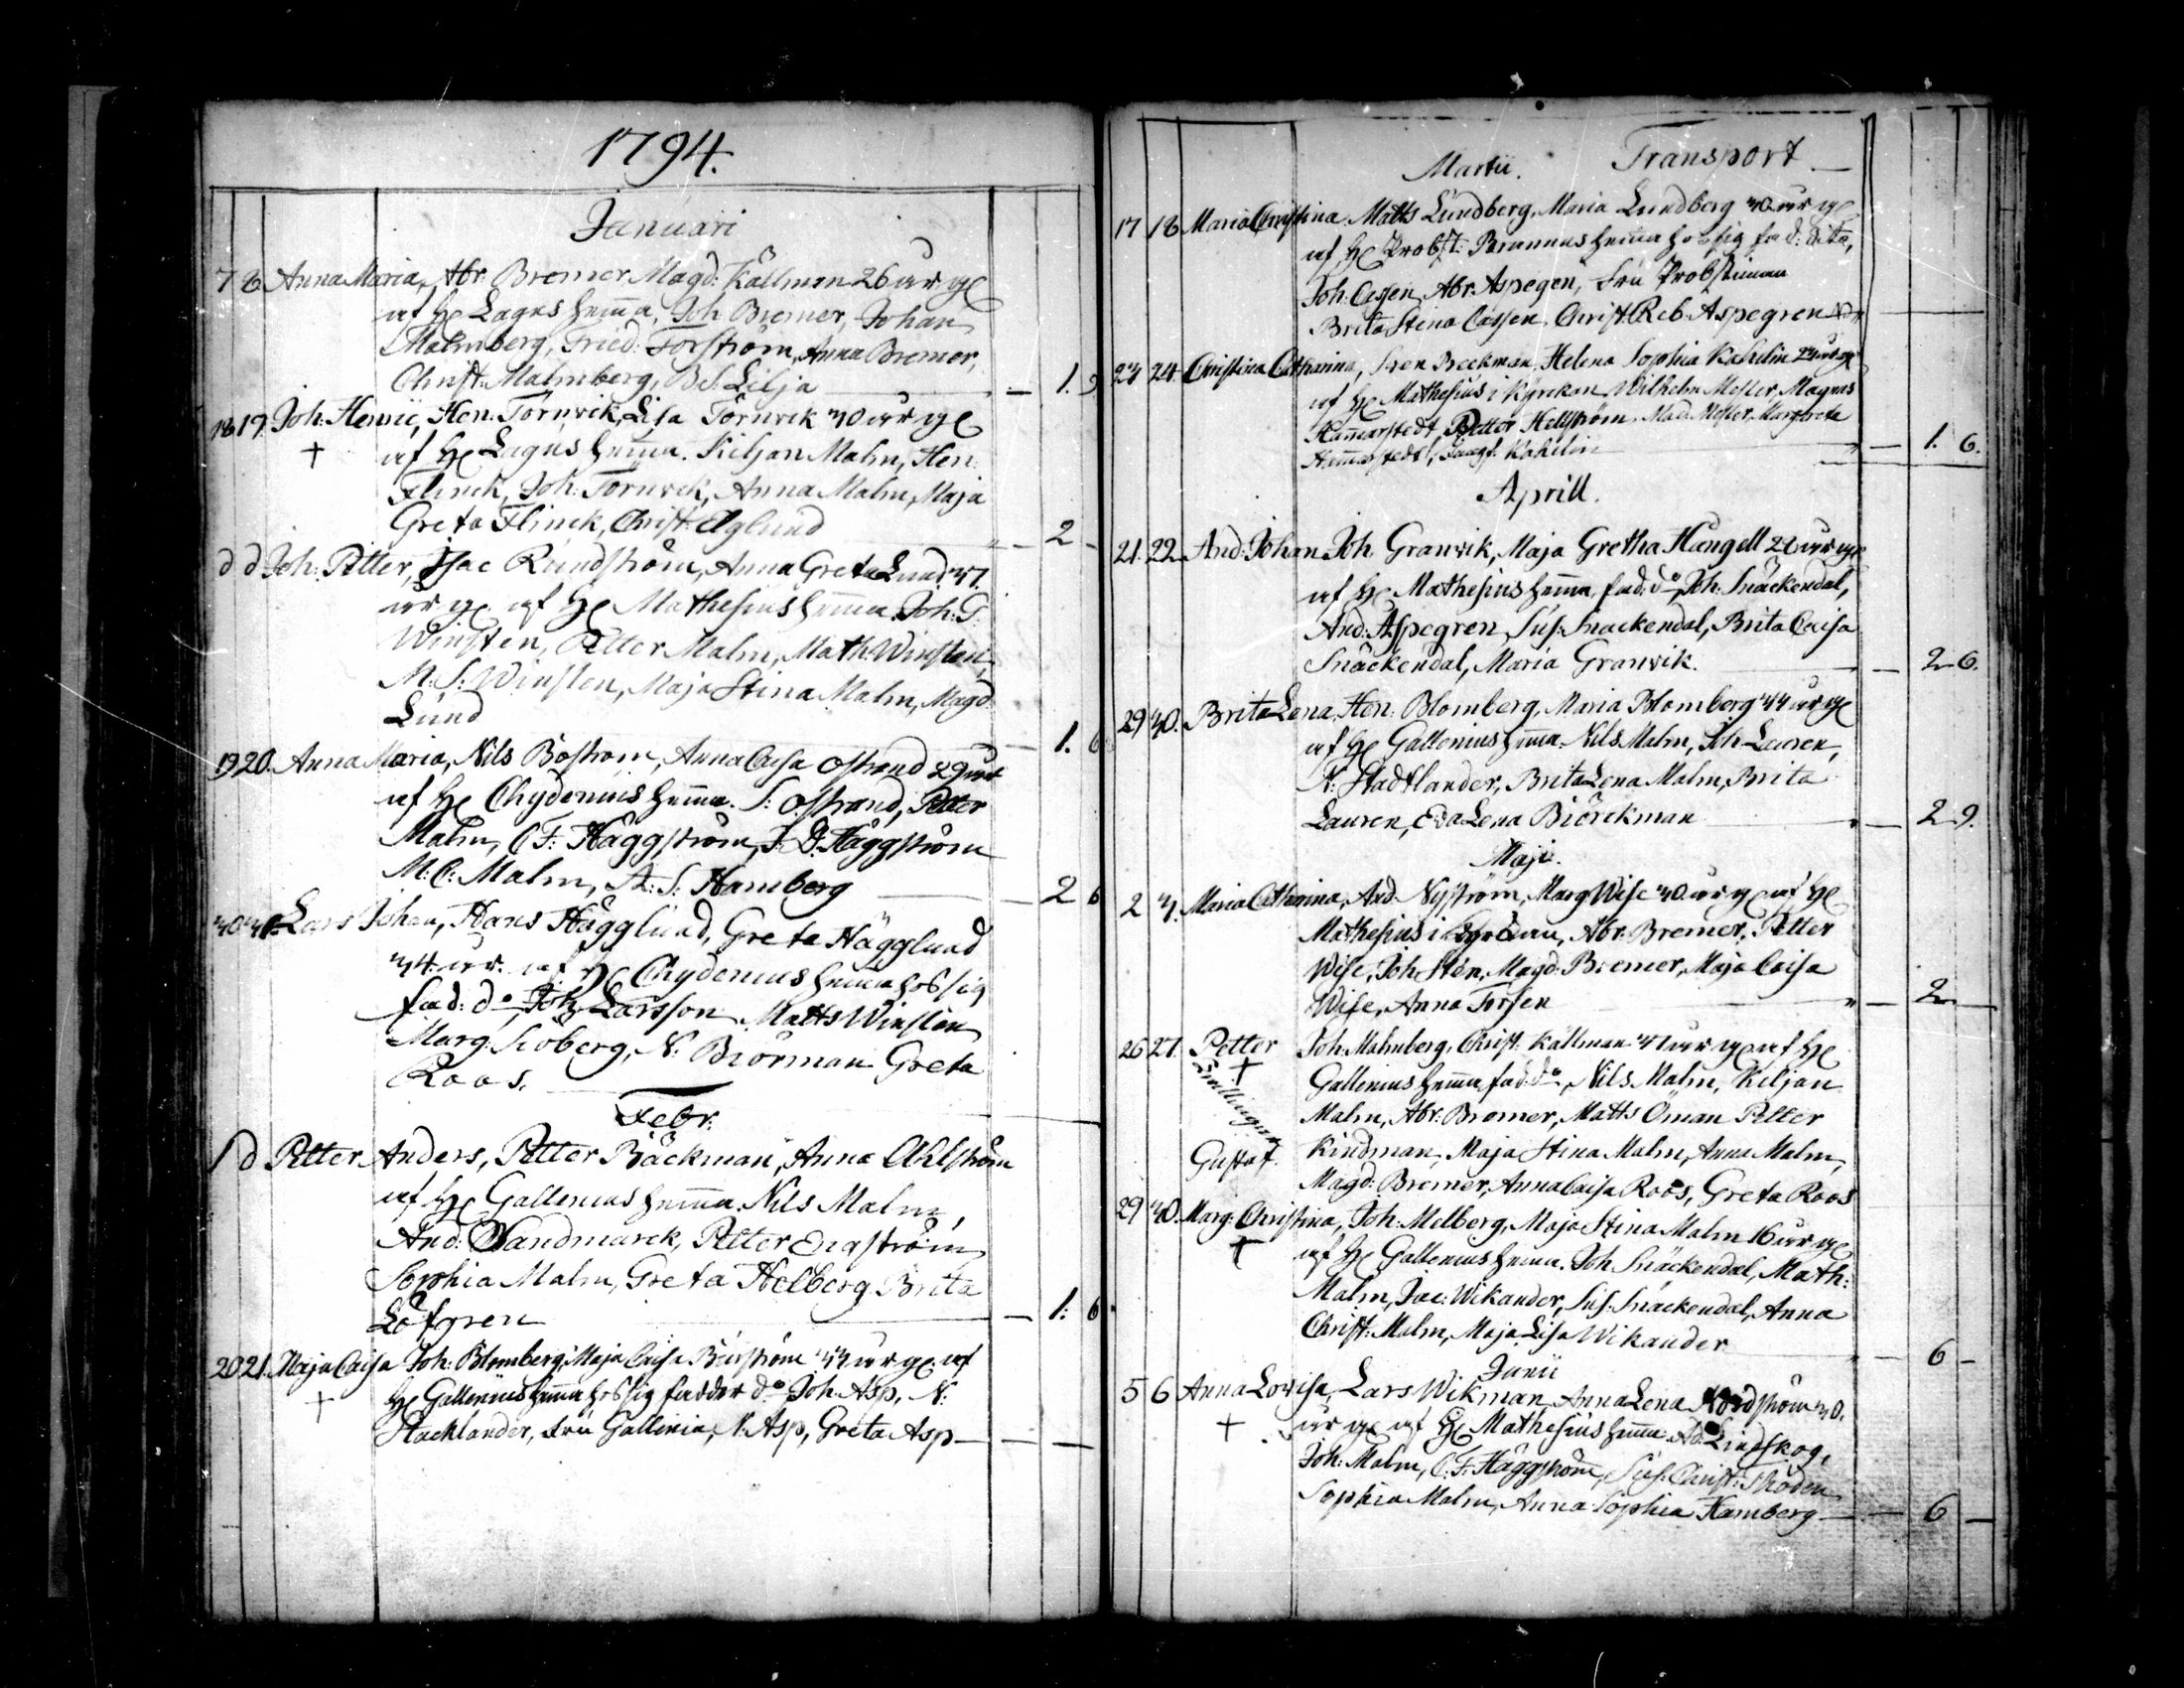 1794.
Januari
7 8 Anna Maria, Abr. Bremer Magd: Kållman 26 år ge
af He Lagus hema, Joh Bremer, Johan
Malmberg, Fried: Forström, Anna Bremer,
Christ: Malmberg, Be: Lilja — 1. 9
18 19 Joh: Henric, Hen: Törnvik, Lisa Törnvik 30 år ge
† af He Lagus hema. Kiljan Malm, Hen:
Flinck, Joh: Törnvik, Anna Malm, Maja
Greta Flinck, Christ: Aglund — 2 —
d d Joh: Petter, Isac Rundström, Anna Greta Lund 37.
år ge af He Mathesius hema Joh: G:
Winsten, Petter Malm, Math Winsten,
M: S: Winsten, Maja Stina Malm, Magd
Lund — 1. 6
19 20. Anna Maria, Nils Boström, Anna Caisa Ostrand 29 år
af He Chydenius hema. S: Ostrand, Petter
Malm, C F: Häggström, J: D: Häggström
M: C: Malm, A: S: Hamberg — 2 6
30 31. Lars Johan, Hans Hägglund, Greta Hägglund
34. år. af He Chydenius hema hos sig
fad: do, Joh Larsson Matts Winsten
Marg: Siöberg, N: Biörman Greta
Roos.
Febr:
1 d Petter Anders, Petter Bäckman, Anna Ahlström
af He Gallenius hema. Nils Malm,
And: Sandmarck, Petter Engström
Sophia Malm, Greta Helberg Brita
Löfgren — 1: 6
20 21. Maja Caisa Joh: Blomberg, Maja Caisa 33 år ge. af
† He Gallenius hema hos sig fadder do Joh: Asp, N:
Stacklander, Fru Gallenia, N: Asp, Greta Asp — —
Martii. Transport —
17 18 Maria Christina Matts Lundberg, Maria Lundberg 30 år ge
af He Probst: Brunnus hema hos sig fad: dito,
Joh: Cassen, Abr: Aspegren, Fru Probstinnan
Brita Stina Cassen, Christ. Reb: Aspegren
23 24. Christina Catharina, Sven Breckman, Helena Sophia Kahelin 23 år ge
af He Mathesius i Kyrckan Wilhelm Mesler, Magnus
Hamarstedt, Petter Hellström, Mad: Mesler, Margareta
Hamarstedt, Jungf: Kahelin — 1. 6.
Aprill.
21. 22. And: Johan Joh. Granvik, Maja Gretha Hängell 20 år ge
af He Mathesius hema, fad: do, Joh: Snäckendal,
And: Aspegren, Sus: Snäckendal, Brita Caisa
Snäckendal, Maria Granvik. — 2 6.
29 30. Brita Lena, Hen: Blomberg, Maria Blomberg 33 år ge
af He Gallenius hema. Nils Malm, Joh: Lauren,
N: Stadtlander, Brita Lena Malm, Brita
Lauren, Eva Lena Biörckman — 2 9.
Maji.
2 3. Maria Catharina, And: Nyström, Marg Wise 30 år ge af He
Mathesius i Kyrckan, Abr: Bremer, Petter
Wise, Joh Sten, Magd: Bremer, Maja Caisa
Wise, Anna Forsen — 2 —
26 27. Petter Joh: Malmberg, Christ: Kållman 37 år ge af He
† Gallenius hema, fad: do, Nils Malm, Kiljan
Tvillingar Malm, Abr: Bremer, Matts Öman Petter
Gustaf. Kindman, Maja Stina Malm, Anna Malm,
Magd: Bremer, Anna Caisa Roos, Greta Roos
29 30. Marg: Christina, Joh: Melberg, Maja Stina Malm 16 år ge
† af He Gallenius hema. Joh Snäckendal, Math:
Malm, Jac: Wikander, Sus: Snäckendal, Anna
Christ: Malm, Maja Lisa Wikander — 6 —
Junii
5 6 Anna Lovisa, Lars Wikman, Anna Lena Nordström 30.
† år ge af He Mathesius hema. Ad: Lindskog,
Joh: Malm, C: F: Häggström, Sus: Christ: Thoden
Sophia Malm, Anna Sophia Hamberg — 6 —